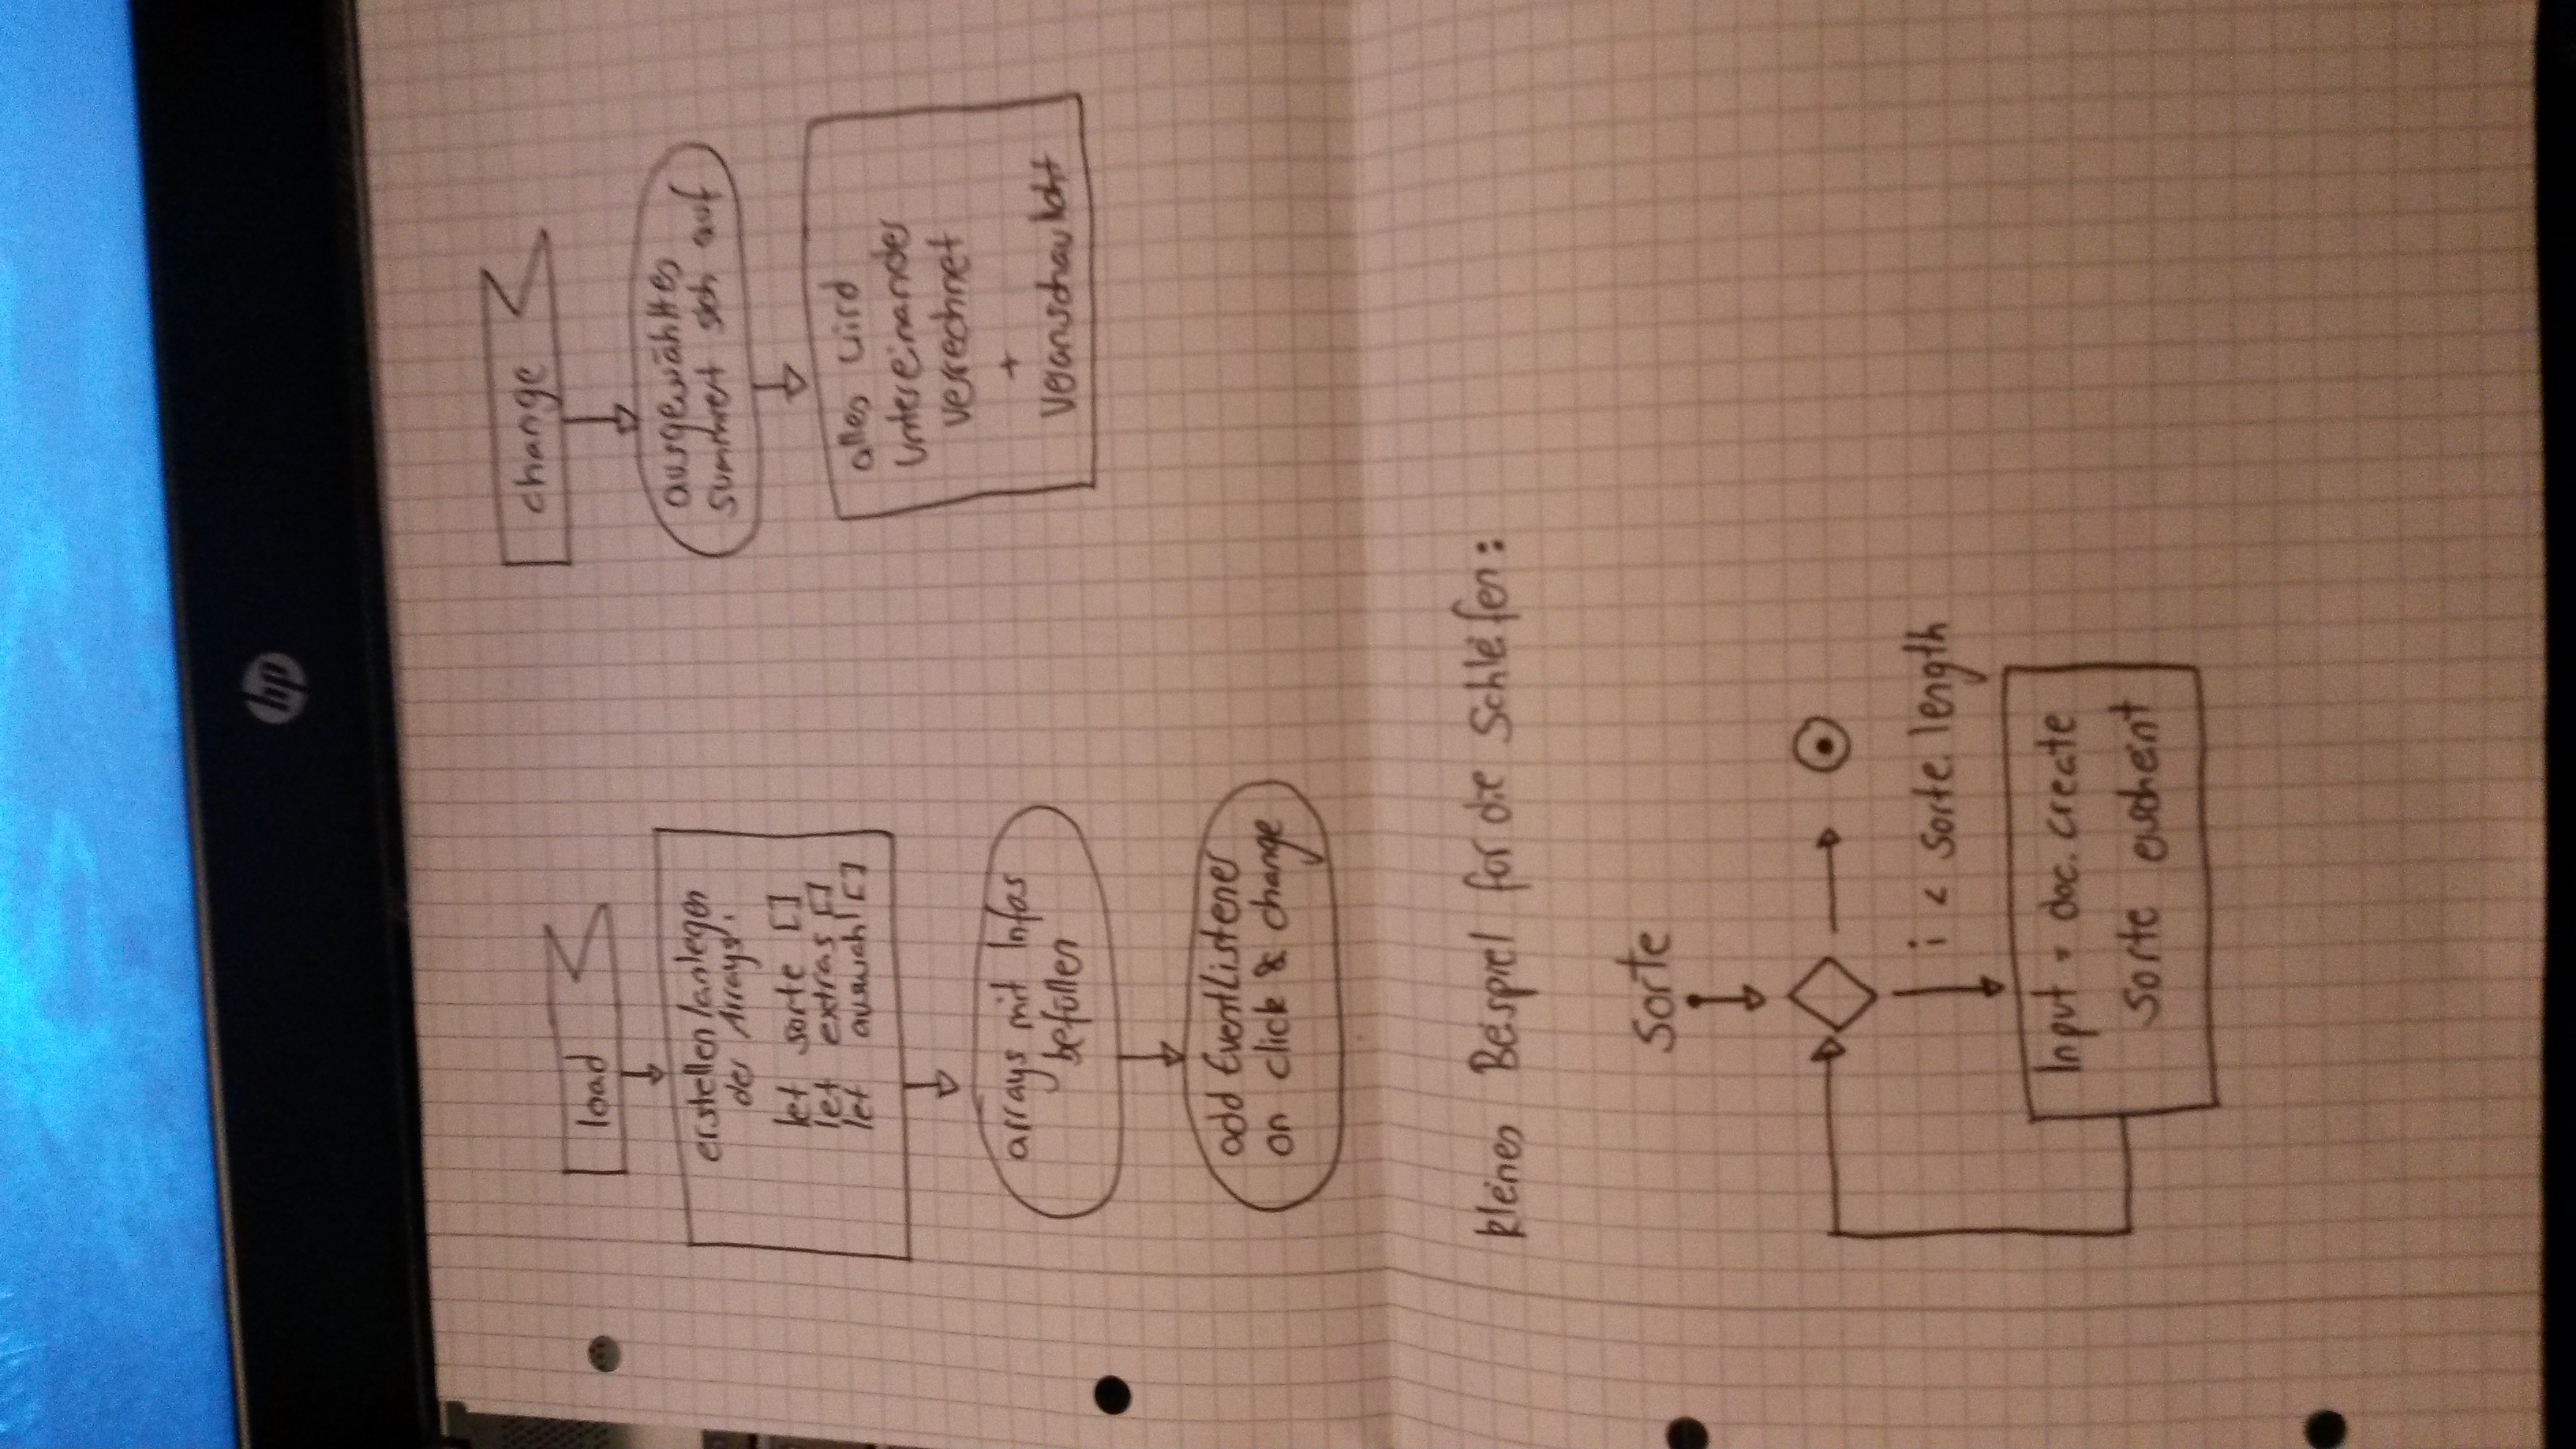 hp
load
erstellen/anlegen
der Arrays:
let sorte []
let extras []
let auswahl []
arrays mit Infos
befüllen
add EventListener
on click & change
change
ausgewähltes
summiert sich auf
alles wird
untereinander
verrechnet
+
veranschaulicht
kleines Beispiel für die Schleifen:
Sorte
i < sorte.length
Input = doc.create
sorte erscheint